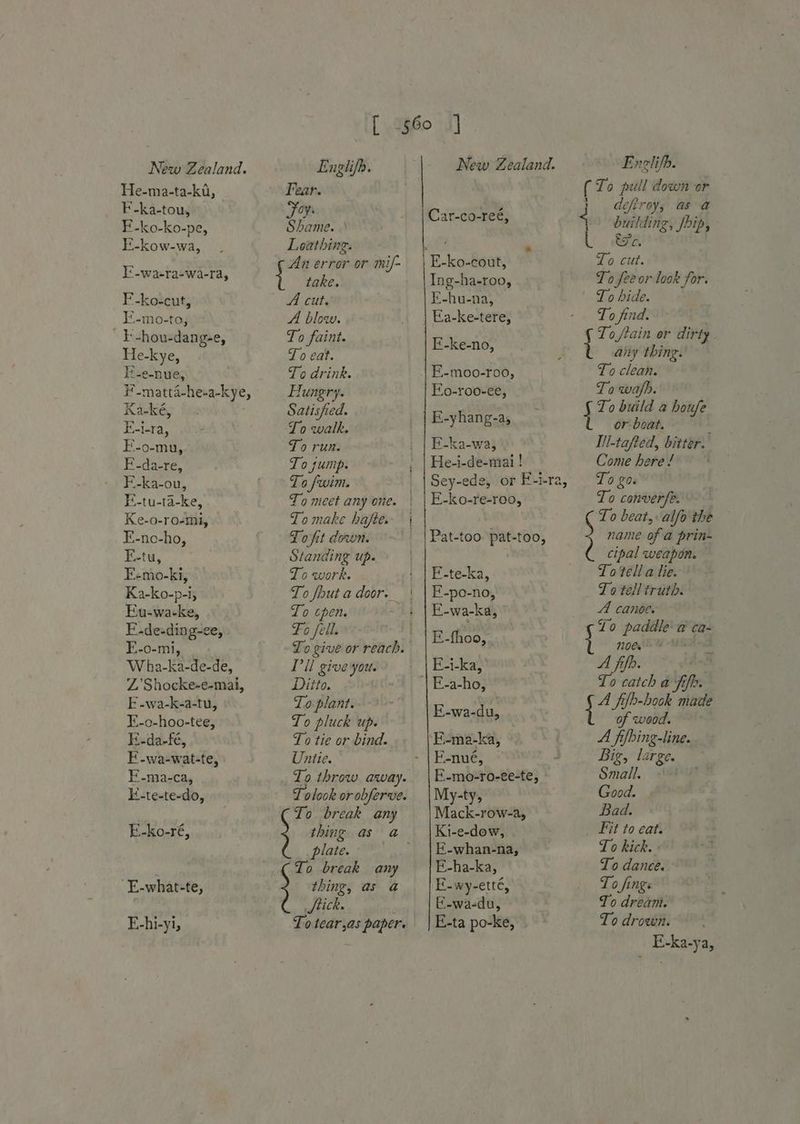 [ 560 ]
New Zealand. Engliſh.
He-ma-ta-kû, Fear.
E-ka-tou, Joy.
E-ko-ko-pe, Shame.
E-kow-wa, Loathing.
E-wa-ra-wa-ra, { An error or miſ-
take.
E-ko-cut, A cut.
E-mo-to, A blow.
E-hou-dang-e, To faint.
He-kye, To eat.
E-e-nue, To drink.
E-mattá-he-a-kye, Hungry.
Ka-ké, Satisfied.
E-i-ra, To walk.
E-o-mu, To run.
E-da-re, To jump.
E-ka-ou, To ſwim.
E-tu-ta-ke, To meet any one.
Ke-o-ro-mi, To make haſte.
E-no-ho, To ſit down.
E-tu, Standing up.
E-mo-ki, To work.
Ka-ko-p-i, To ſhut a door.
Eu-wa-ke, To open.
E-de-ding-ee, To ſell.
E-o-mi, To give or reach.
Wha-ka-de-de, I'll give you.
Z'Shocke-e-mai, Ditto.
E-wa-k-a-tu, To plant.
E-o-hoo-tee, To pluck up.
E-da-fé, To tie or bind.
E-wa-wat-te, Untie.
E-ma-ca, To throw away.
E-te-te-do, To look or obſerve.
E-ko-ré, { To break any
thing as a
plate.
E-what-te, { To break any
thing, as a
ſtick.
E-hi-yi, To tear, as paper.
New Zealand. Engliſh.
Car-co-reé, { To pull down or
deſtroy, as a
building, ſhip,
&c.
E-ko-eout, To cut.
Ing-ha-roo, To ſee or look for.
E-hu-na, To hide.
Ea-ke-tere, To find.
E-ke-no, { To ſtain or dirty
any thing.
E-moo-roo, To clean.
Eo-roo-ee, To waſh.
E-yhang-a, { To build a houſe
or boat.
E-ka-wa, Ill-taſted, bitter.
He-i-de-mai ! Come here!
Sey-ede, or E-i-ra, To go.
E-ko-re-roo, To converſe.
Pat-too pat-too, { To beat, alſo the
name of a prin-
cipal weapon.
E-te-ka, To tell a lie.
E-po-no, To tell truth.
E-wa-ka, A canoe.
E-ſhoo, { To paddle a ca-
noe.
E-i-ka, A fiſh.
E-a-ho, To catch a fiſh.
E-wa-du, { A fiſh-hook made
of wood.
E-ma-ka, A fiſhing-line.
E-nué, Big, large.
E-mo-ro-ee-te, Small.
My-ty, Good.
Mack-row-a, Bad.
Ki-e-dow, Fit to eat.
E-whan-na, To kick.
E-ha-ka, To dance.
E-wy-etté, To ſing.
E-wa-du, To dream.
E-ta po-ke, To drown.
E-ka-ya,